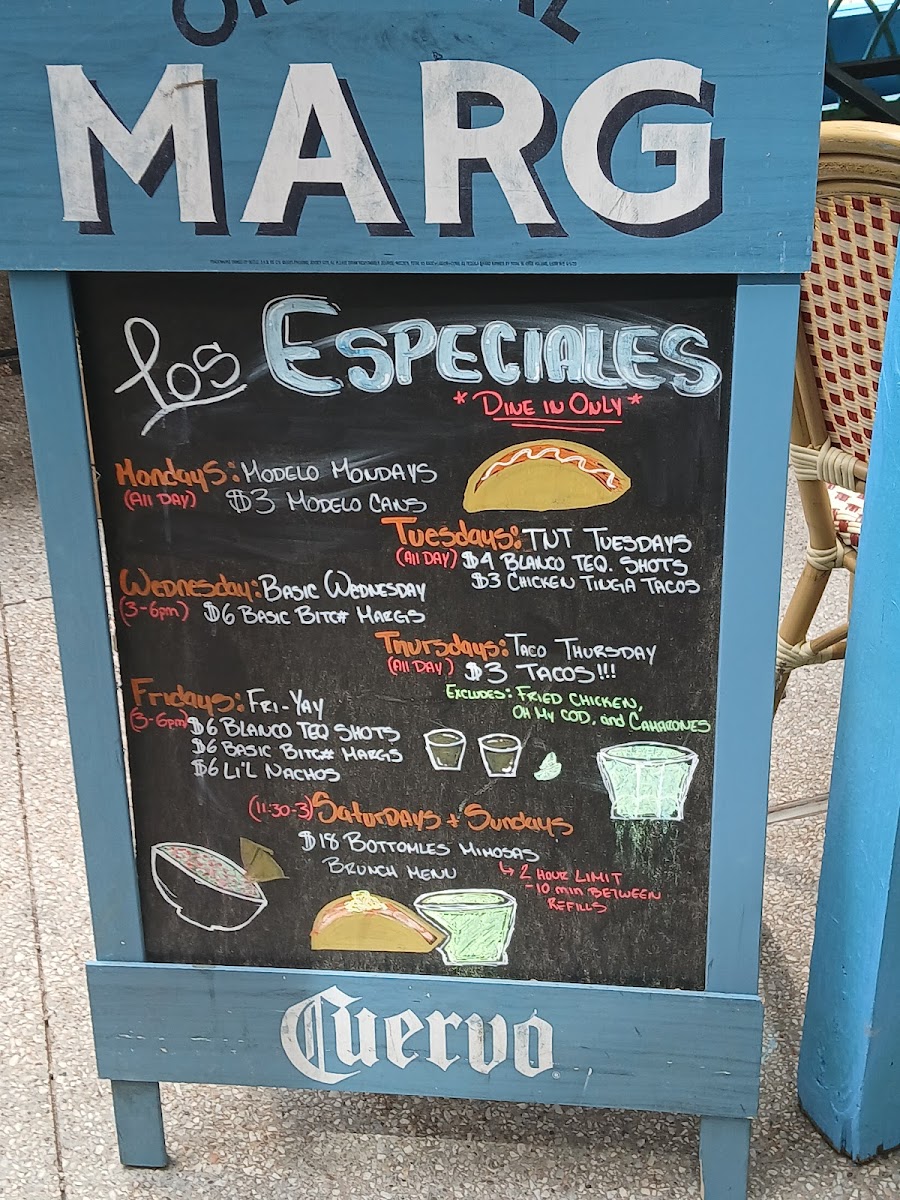 MARG
Los Especiales
* Dine in Only *
Mondays: Modelo Mondays
(All Day) $3 Modelo Cans
Tuesdays: TNT Tuesdays
(All Day) $4 Blanco Teq. Shots
$3 Chicken Tinga Tacos
Wednesday: Basic Wednesday
(3-6pm) $6 Basic Bitc# Margs
Thursdays: Taco Thursday
(All Day) $3 Tacos!!!
Excludes: Fried Chicken,
Oh My Cod, and Camarones
Fridays: Fri-Yay
(3-6pm) $6 Blanco Teq Shots
$6 Basic Bitc# Margs
$6 Li'l Nachos
(11:30-3) Saturdays + Sundays
$18 Bottomles Mimosas
Brunch Menu
↳ 2 Hour Limit
-10 min Between
Refills
Cuervo